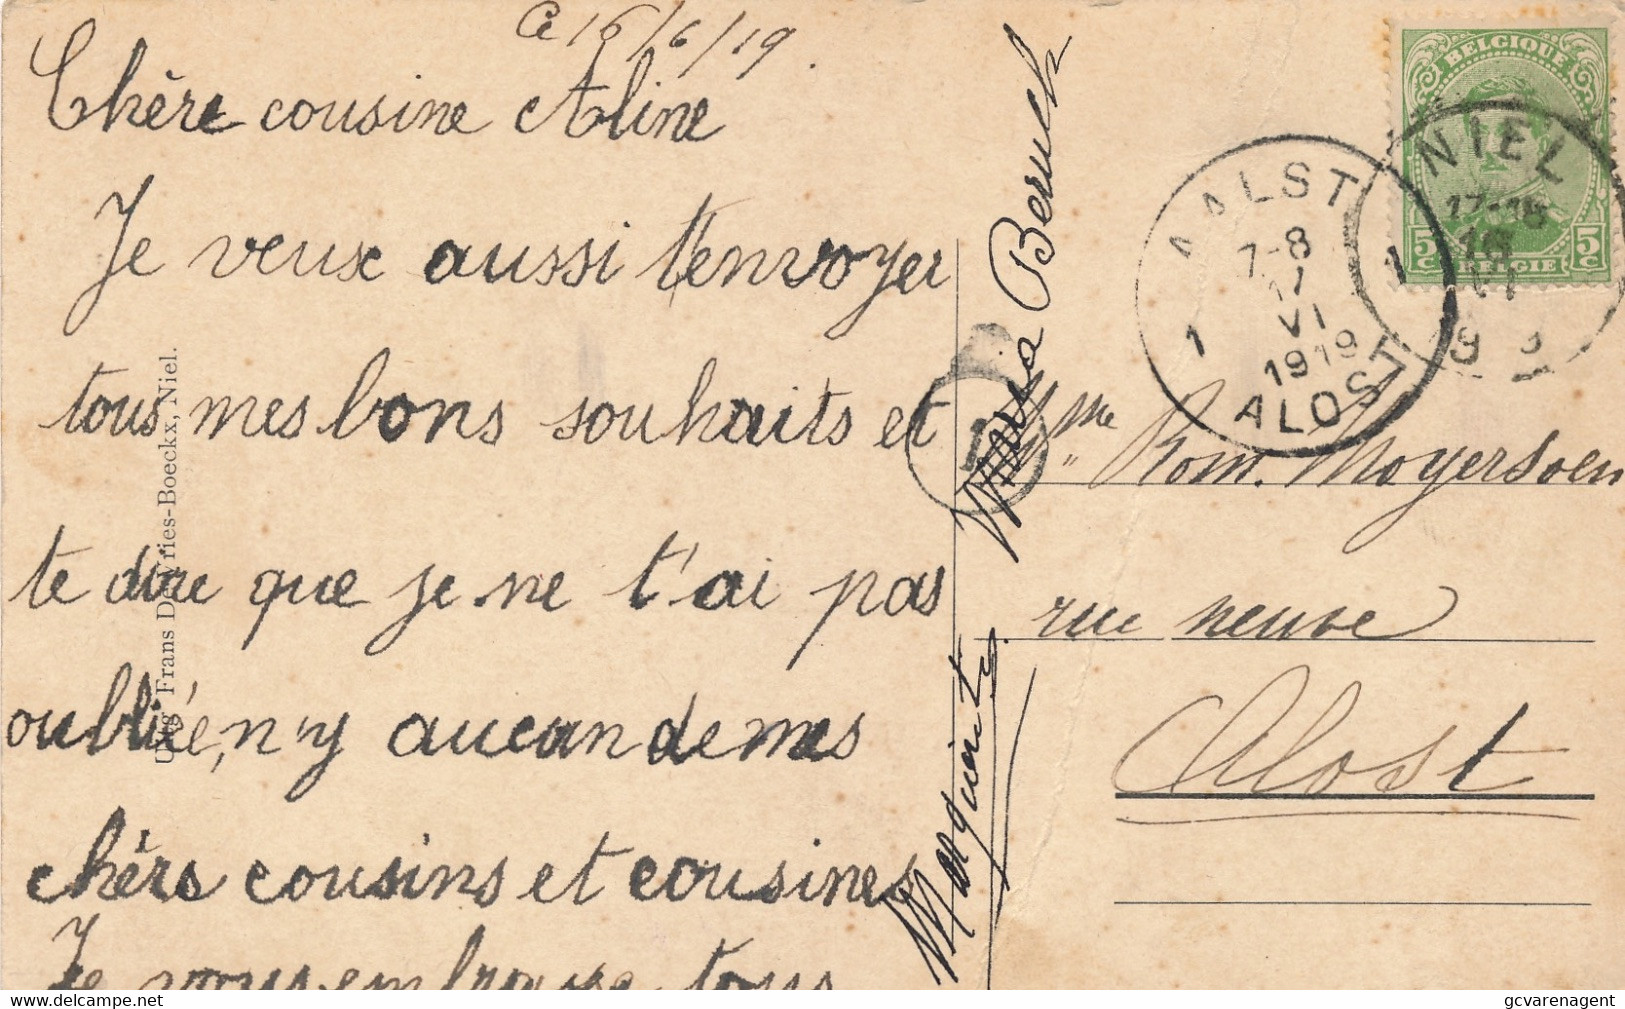 Ce 16/6/19.
Chère cousine Aline
Je veux aussi t'envoyer
tous mes bons souhaits et
te dire que je ne t'ai pas
oublié, n'y aucun de mes
chèrs cousins et cousines
Je vous embrasse tous
Marguerite
Uitg. Frans De Vries-Boeckx, Niel.
BELGIQUE
5c BELGIË 5c
NIEL
16
VI
AALST
7-8
17
VI
1919
1 1
ALOST
1
Mme Rom. Moyersoen
rue neuve
Alost
Delcampe.net
gcvarenagent